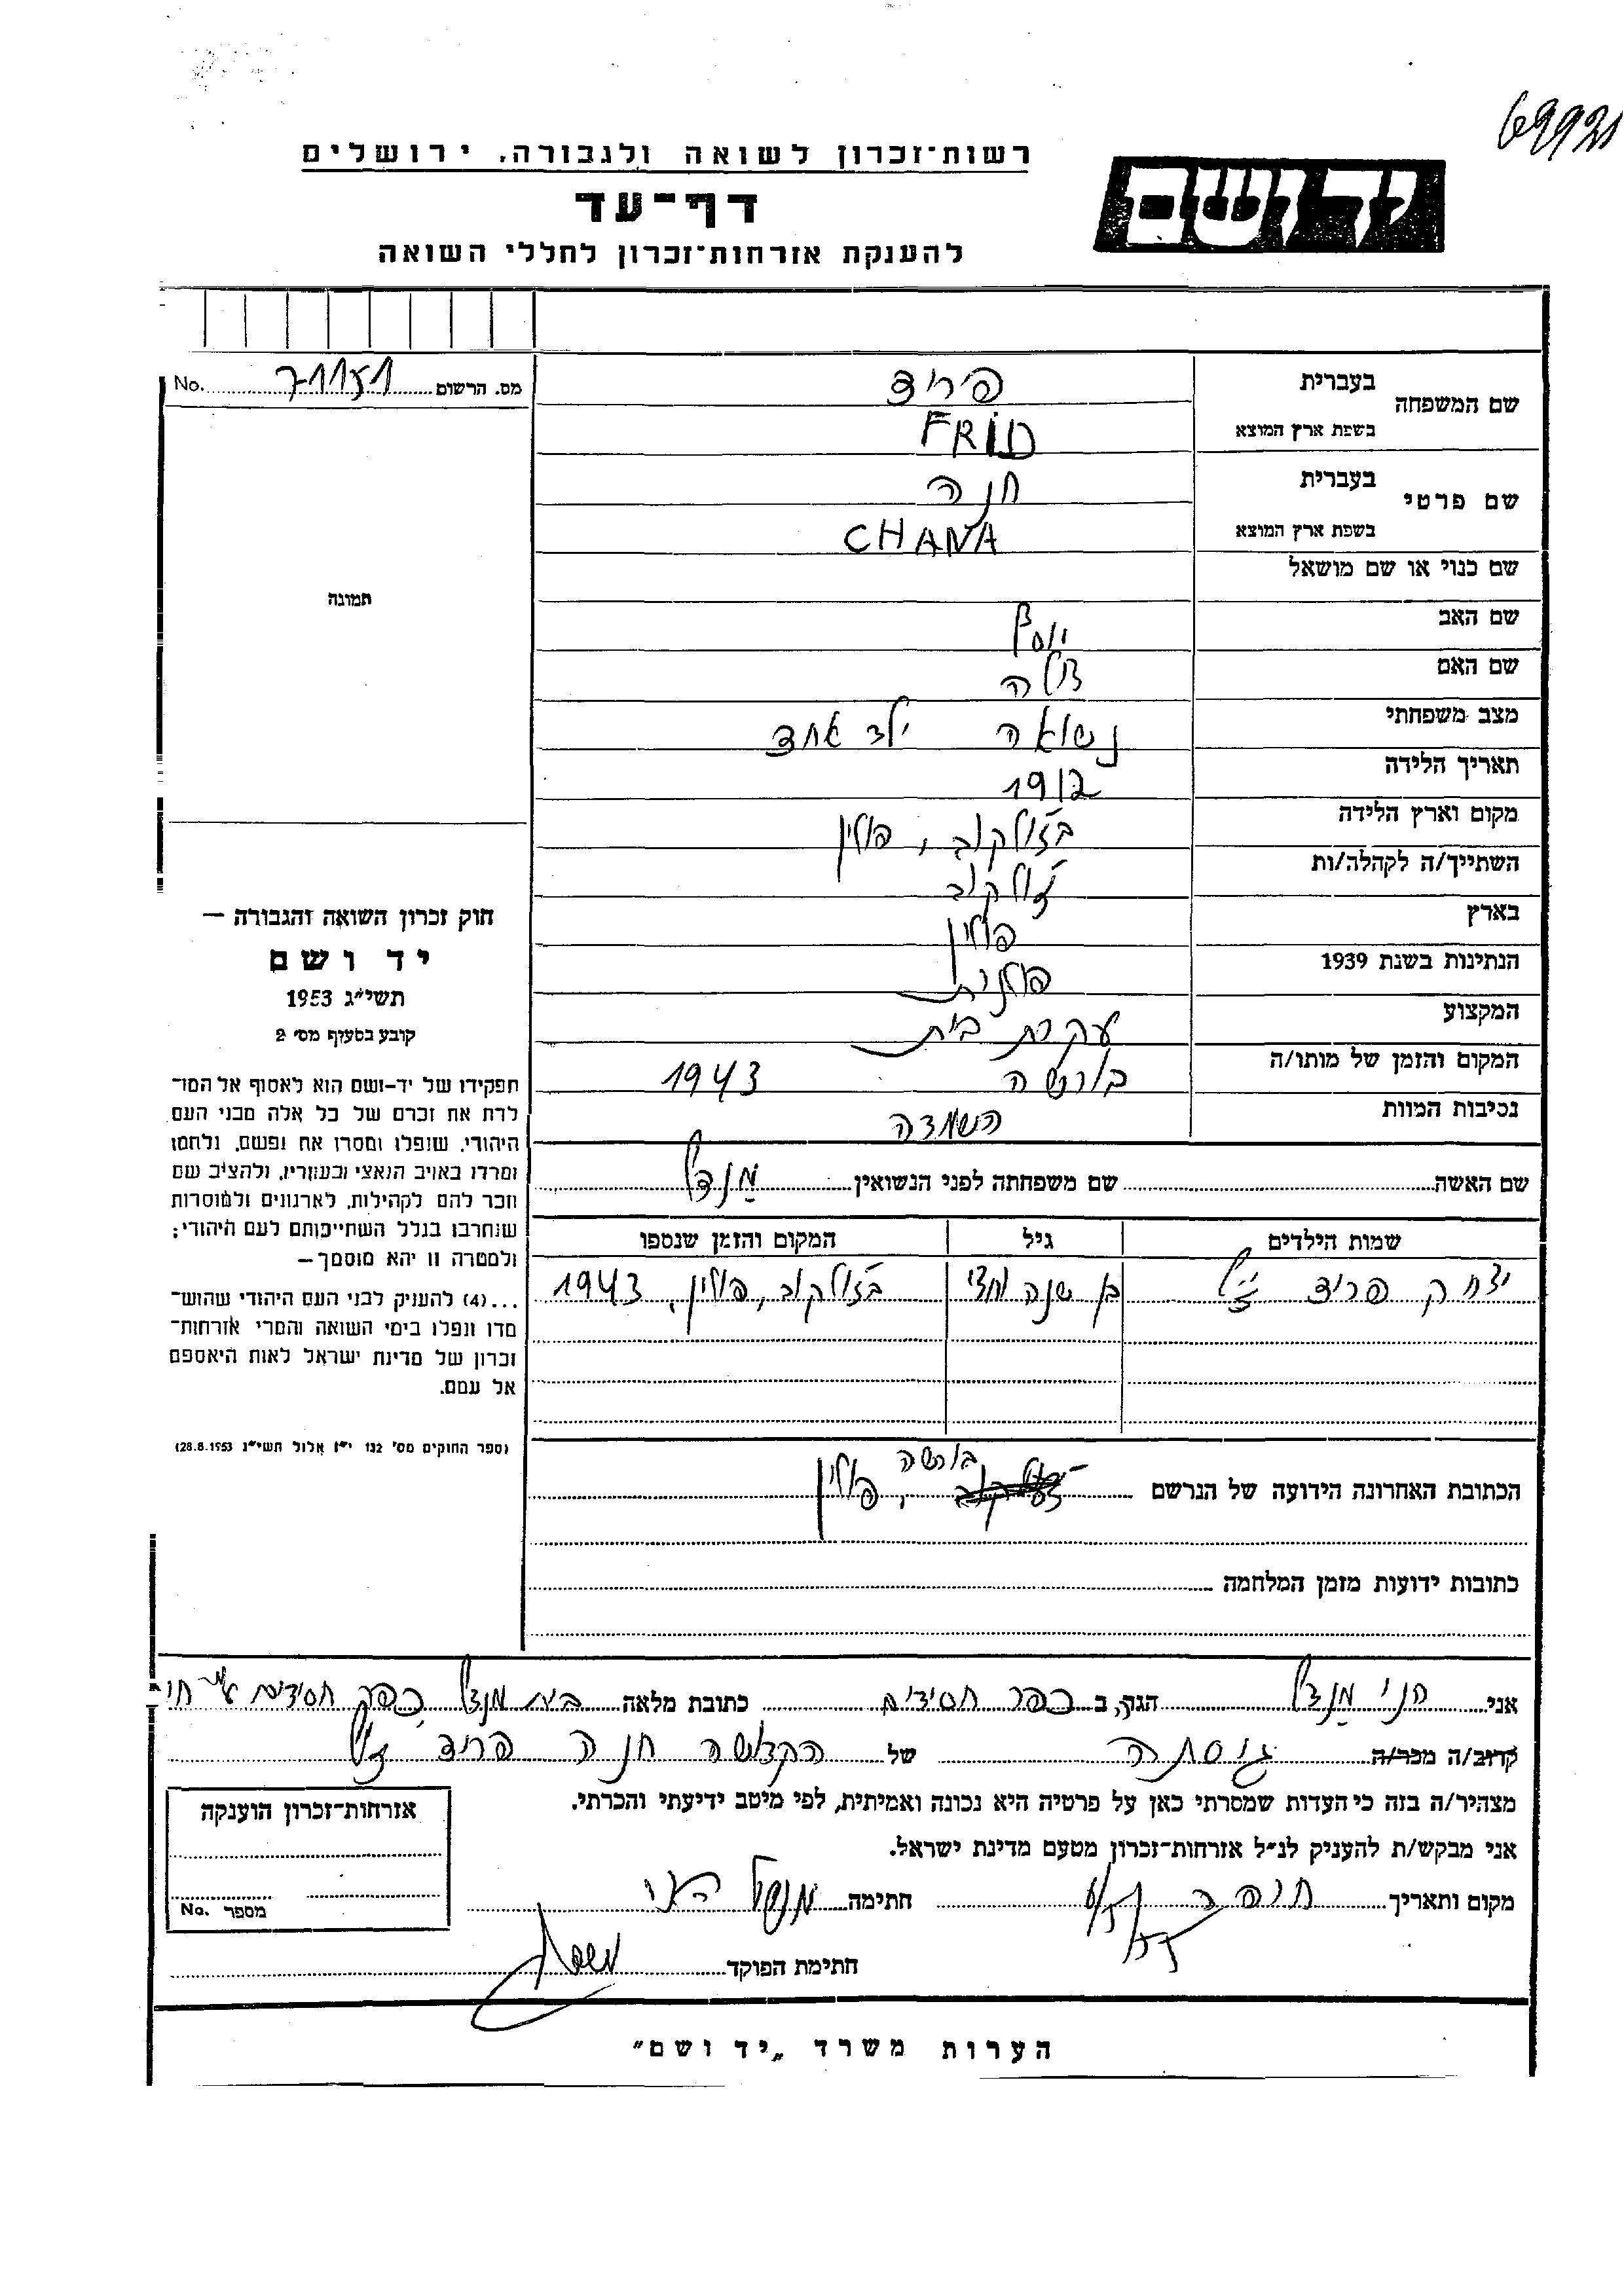 69921
רשות־זכרון לשואה ולגבורה, ירושלים
יד ושם
דף־עד
להענקת אזרחות־זכרון לחללי השואה
שם המשפחה בעברית פריד
בשפת ארץ המוצא FRID
שם פרטי בעברית חנה
בשפת ארץ המוצא CHANA
שם כנוי או שם מושאל
שם האב יוסף
שם האם
מצב משפחתי נשואה ילד אחד
תאריך הלידה 1912
מקום וארץ הלידה בז'ולקוב, פולין
השתייך/ה לקהלה/ות ז'ולקוב
בארץ פולין
הנתינות בשנת 1939 פולנית
המקצוע עקרת בית
המקום והזמן של מותו/ה בורשה 1943
נסיבות המוות השמדה
שם האשה שם משפחתה לפני הנשואין מַנדל
שמות הילדים גיל המקום והזמן שנספו
יצחק פריד ז"ל בן שנה וחצי בז'ולקוב, פולין, 1943
הכתובת האחרונה הידועה של הנרשם בורשה, פולין
כתובות ידועות מזמן המלחמה
מס. הרשום No. 71151
תמונה
חוק זכרון השואה והגבורה —
יד ושם
תשי"ג 1953
קובע בסעיף מס' 2
תפקידו של יד־ושם הוא לאסוף אל המו־
לדת את זכרם של כל אלה מבני העם
היהודי, שנפלו ומסרו את נפשם, נלחמו
ומרדו באויב הנאצי ובעוזריו, ולהציב שם
וזכר להם לקהילות, לארגונים ולמוסדות
שנחרבו בגלל השתייכותם לעם היהודי;
ולמטרה זו יהא מוסמך—
...(4) להעניק לבני העם היהודי שהוש־
מדו ונפלו בימי השואה והמרי אזרחות־
זכרון של מדינת ישראל לאות היאספם
אל עמם.
(ספר החוקים מס' 132 י"ז אלול תשי"ג 28.8.1953)
אני הני מַנדל הגר, ב כפר חסידים כתובת מלאה בית מנדל, כפר חסידים
קרוב/ה מכר/ה גיסתה של הקדושה חנה פריד ז"ל
מצהיר/ה בזה כי העדות שמסרתי כאן על פרטיה היא נכונה ואמיתית, לפי מיטב ידיעתי והכרתי.
אני מבקש/ת להעניק לנ"ל אזרחות־זכרון מטעם מדינת ישראל.
מקום ותאריך חיפה חתימה מנדל הני
חתימת הפוקד
אזרחות־זכרון הוענקה
מספר No.
הערות משרד "יד ושם"